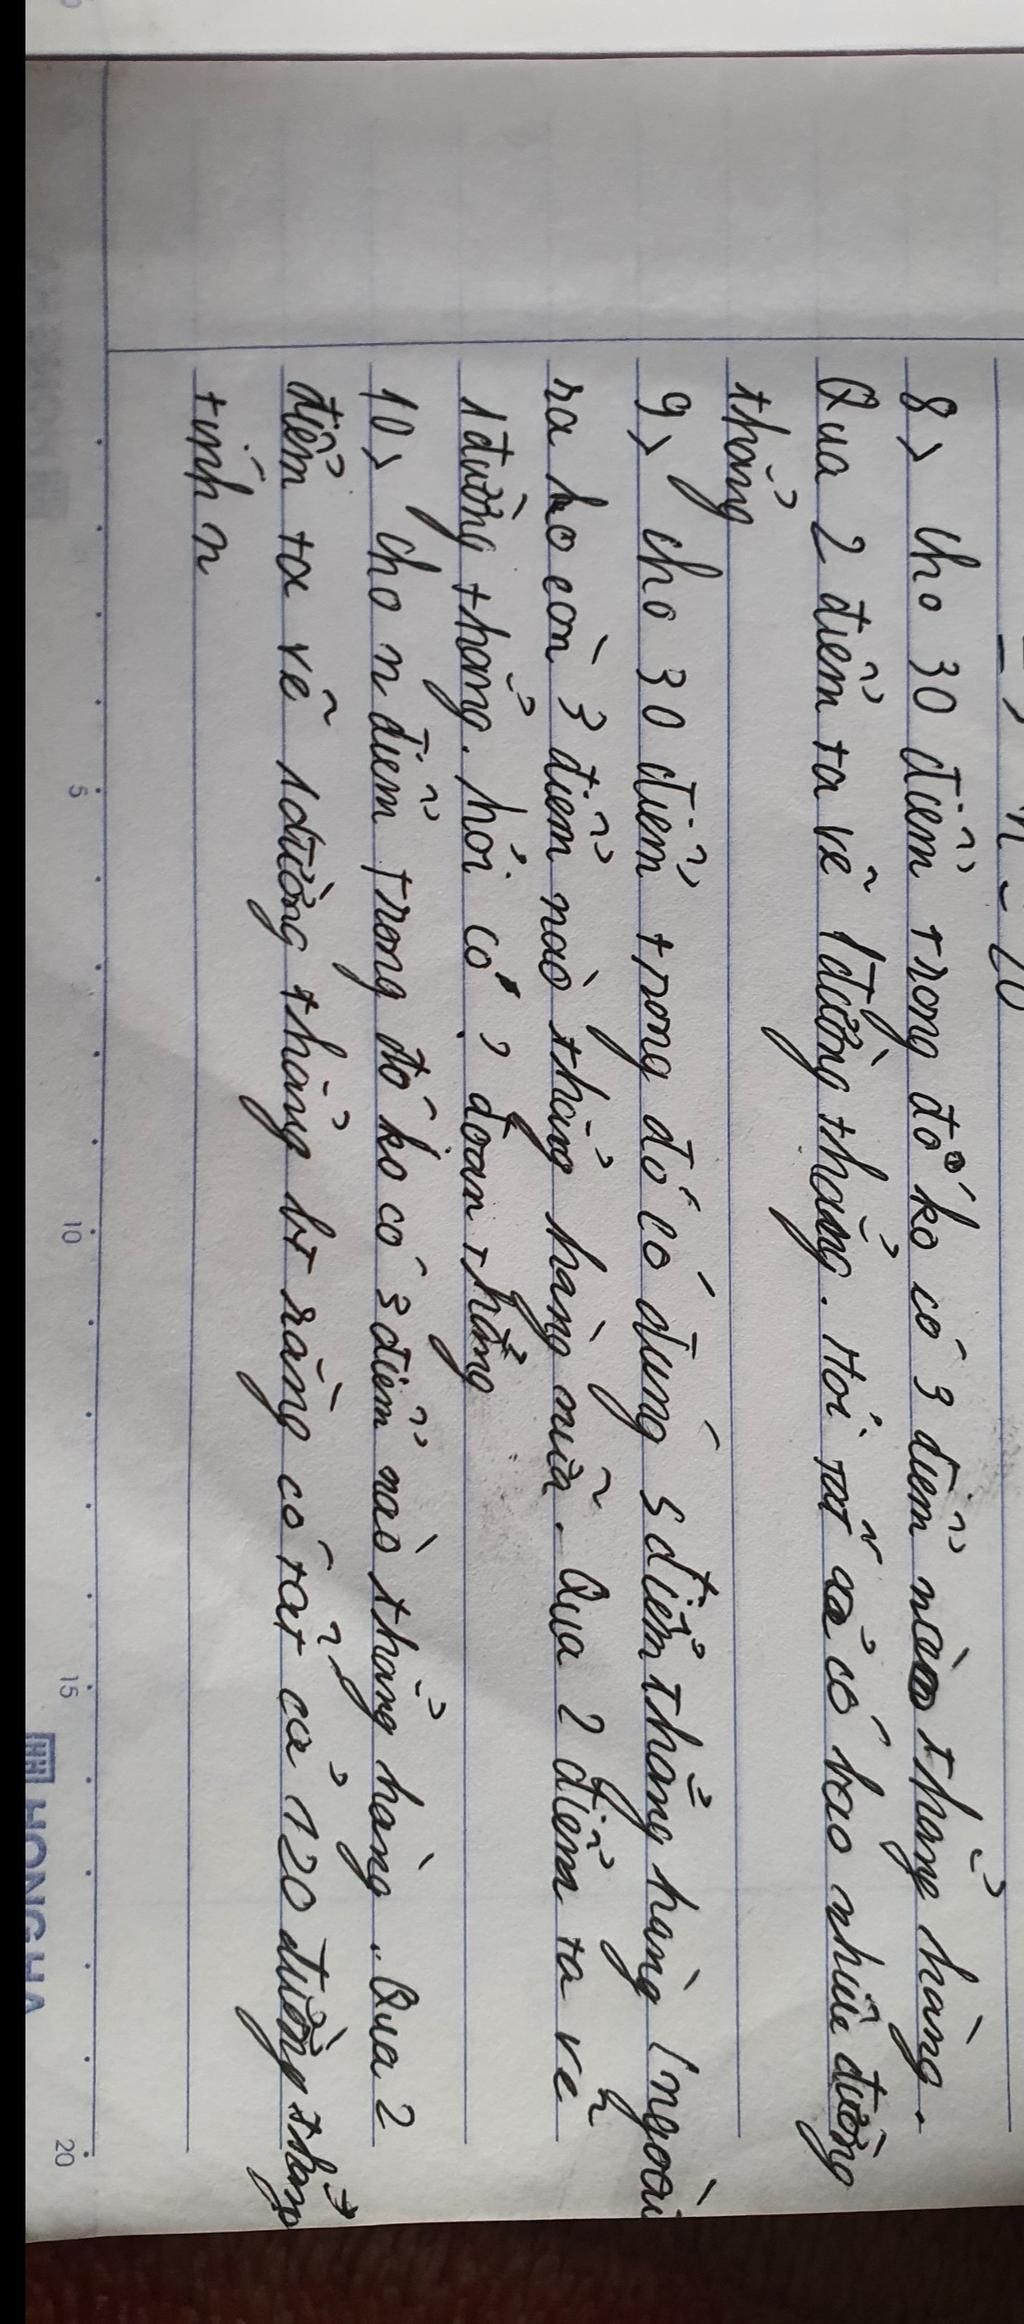 8> cho 30 điểm trong đó ko có 3 điểm nào thẳng hàng.
Qua 2 điểm ta vẽ 1 đường thẳng. Hỏi tất cả có bao nhiêu đường
thẳng
9> cho 30 điểm trong đó có đúng 5 điểm thẳng hàng (ngoài
ra ko còn 3 điểm nào thẳng hàng nữa. Qua 2 điểm ta vẽ
1 đường thẳng. hỏi có ? đoạn thẳng
10> cho n điểm trong đó ko có 3 điểm nào thẳng hàng. Qua 2
điểm ta vẽ 1 đường thẳng bt rằng có tất cả 120 đường thẳng
tính n
5 10 15 20
HONG HA